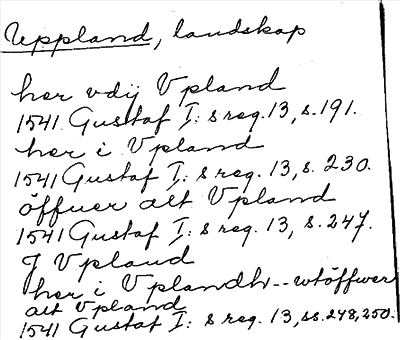 Uppland, landskap
her vdij Vpland
1541 Gustaf I: s reg. 13, s. 191.
her i Vpland
1541 Gustaf I: s reg. 13, s. 230.
öffuer alt Vpland
1541 Gustaf I: s reg. 13, s. 247.
J Vpland
her i Vplandh -- wtöffwer
alt Vpland
1541 Gustaf I: s reg. 13, ss. 248, 250.